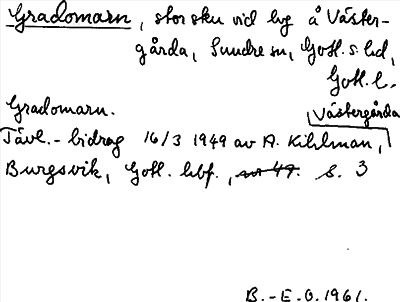 Gradomarn, stor sku vid lvg å Väster-
gårda, Sundre sn, Gotl. s. hd,
Gotl. l.
Gradomarn.
Västergårda
Tävl.-bidrag 16/3 1949 av A. Kihlman,
Burgsvik, Gotl. hbf., s. 3
B.-E.O. 1961.